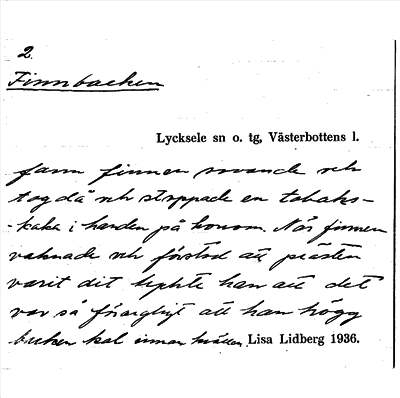 2.
Finnbacken
Lycksele sn o. tg, Västerbottens l.
fann finnen sovande och
tog då och stoppade en tobaks-
-kaka i handen på honom. När finnen
vaknade och förstod att prästen
varit dit tyckte han att det
var så förargligt att han högg
backen kal innan kvällen.
Lisa Lidberg 1936.